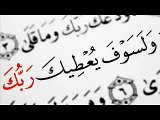 وَدَّعَكَ رَبُّكَ وَمَا قَلَىٰ ٣
وَلَسَوْفَ يُعْطِيكَ رَبُّكَ
٦